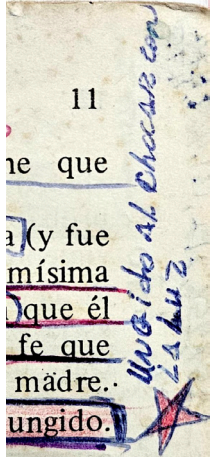 11
ne que
a (y fue
mísima
que él
fe que
madre..
ungido.
ungido al
la luz